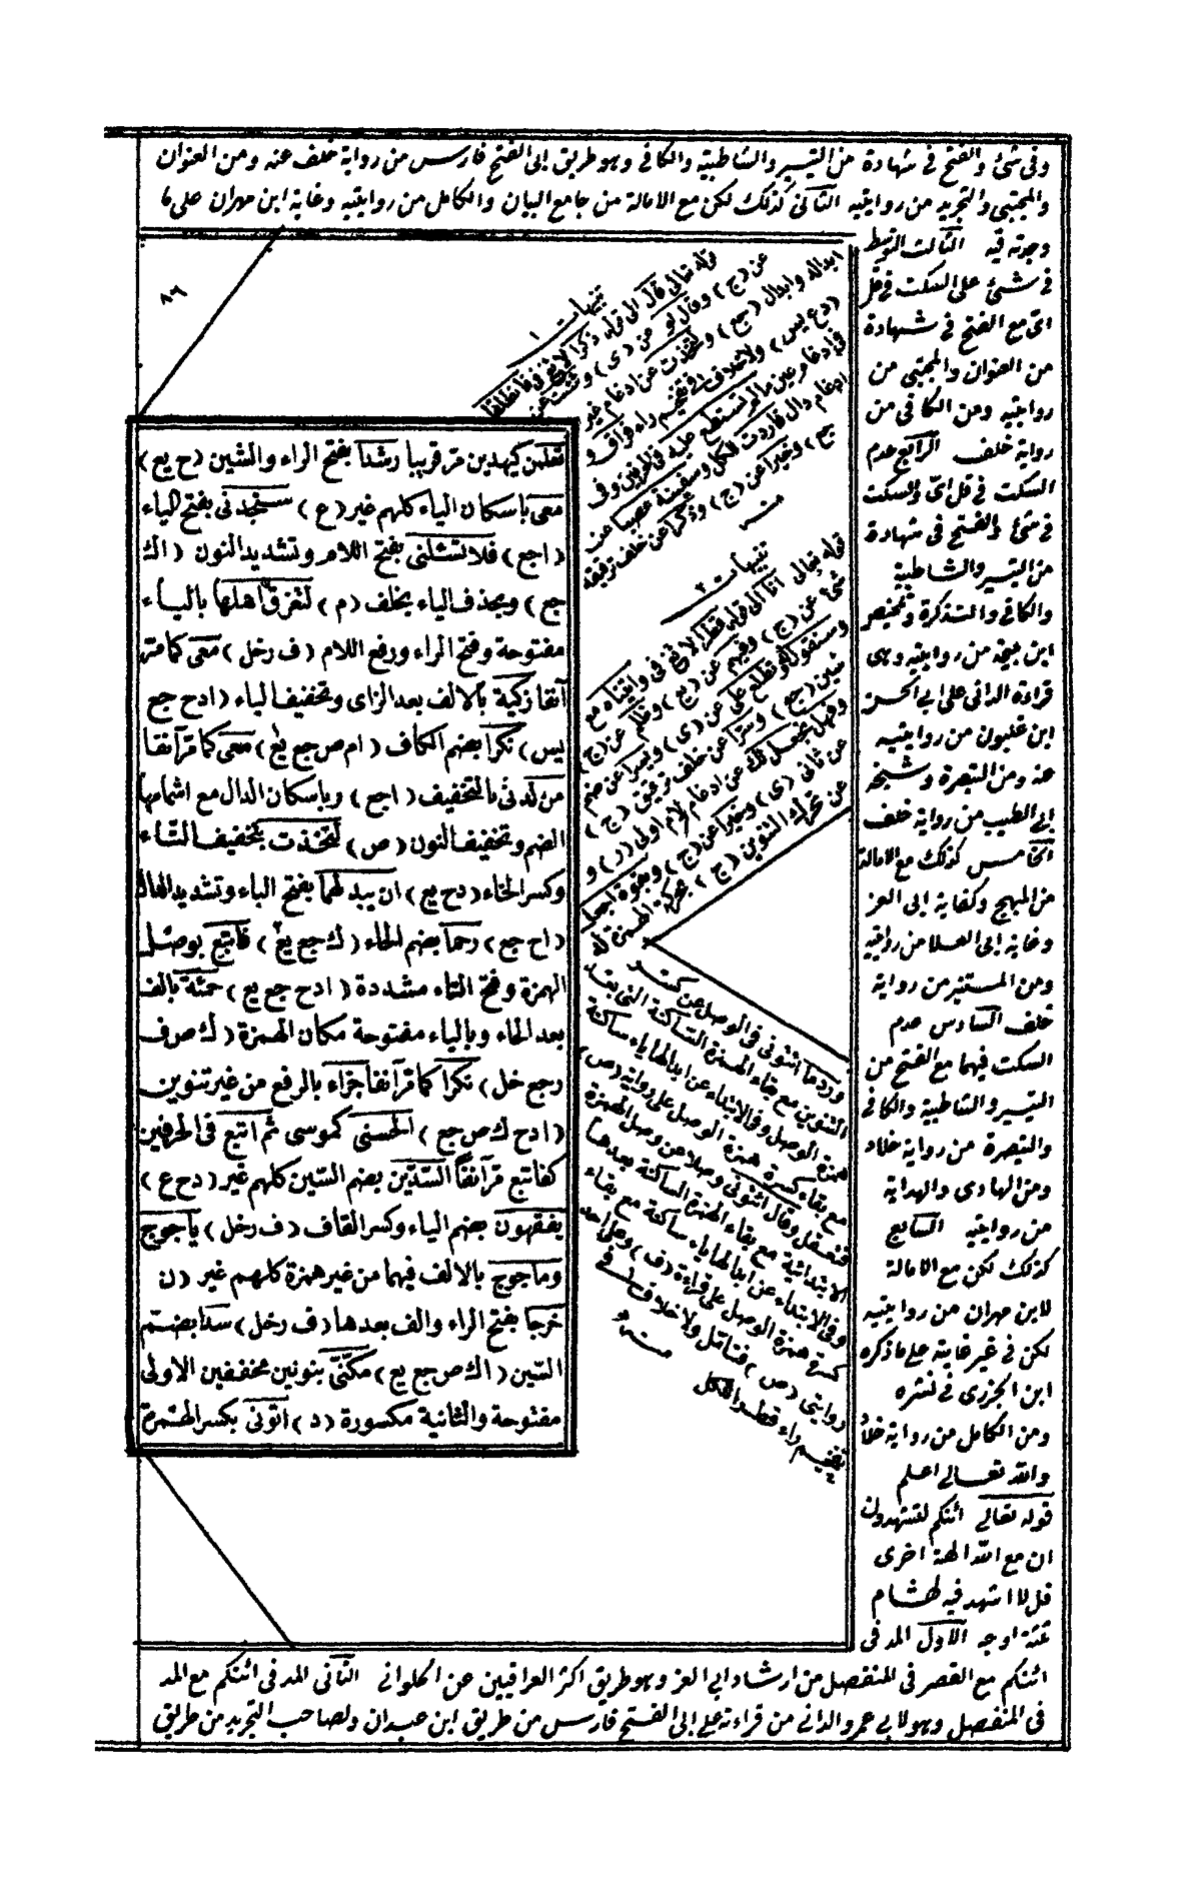 وفى شئ والفتح فى شهادة من التيسير والشاطبية والكافى وهو طريق ابى الفتح فارس من رواية خلف عنه ومن العنوان
والمجتبى والتجريد من روايتيه الثانى كذلك لكن مع الامالة من جامع البيان والكامل من روايتيه وغاية ابن مهران على ما
وجدته فيه الثالث التوسط
فى شئ على السكت فى قل
اى مع الفتح فى شهادة
من العنوان والمجتبى من
روايتيه ومن الكافى من
رواية خلف الرابع عدم
السكت فى قل اى والسكت
فى شئ والفتح فى شهادة
من التيسير والشاطبية
والكافى والتذكرة وتلخيص
ابن بليمة من روايتيه وهى
قراءة الدانى على ابى الحسن
ابن غلبون من روايتيه
عنه ومن التبصرة وشيخه
ابى الطيب من رواية خلف
الخامس كذلك مع الامالة
من المبهج وكفاية ابى العز
وغاية ابى العلا من روايتيه
ومن المستنير من رواية
خلف السادس عدم
السكت فيهما مع الفتح من
التيسير والشاطبية والكافى
والتبصرة من رواية خلاد
ومن الهادى والهداية
من روايتيه السابع
كذلك لكن مع الامالة
لابن مهران من روايتيه
لكن فى غير غايته على ما ذكره
ابن الجزرى فى نشره
ومن الكامل من رواية خلاد
والله تعالى اعلم
قوله تعالى ائنكم لتشهدون
ان مع الله الهة اخرى
قل لا اشهد فيه لهشام
ثلثة اوجه الاول المد فى
ائنكم مع القصر فى المنفصل من ارشاد ابى العز وهو طريق اكثر العراقيين عن الحلوانى الثانى المد فى ائنكم مع المد
فى المنفصل وهو لابى عمرو الدانى من قراءته على ابى الفتح فارس من طريق ابن عبدان ولصاحب التجريد من طريق
٨٦
تنبيهات ١
قوله تعالى قال الى قوله ذكرا لا يخفى فانطلقا
عن (ج) وقال لو عن (ى) وشئت عن
ابداله وابدال (جع) ولتخذت عن ادغام غير
(دع يس) ولا خلاف فى تفخيم راء فراق و
فى ادغام عين ما لم تستطع عليه فى الحرفين وفى
ادغام دال فاردت للكل وسفينة غصبا عن
جع) وخيرا عن (ج) وذكرا عن خلف ترقيقه
منه
تنبيهات ٢
قوله تعالى انا الى قوله قطرا لا يخفى وآتيناه مع
شئ عن (ج) وفيهم عن (يع) وظلم عن (ج)
وسنقول له وتطلع على عن (ى) ويسرا عن ضم
شين (جع) وسترا عن خلف ترقيق (ج)
وفهل نجعل لك عن ادغام لام اولى (ر) و
عن ثانى (ى) وخيرا عن (ج) وجزوة
عن تحرك التنوين (ج) بحركة الهمزة له
وردما ائتونى فى الوصل عن كسر
التنوين مع بقاء الهمزة الساكنة التى بعد
همزة الوصل وفى الابتداء عن ابدالها ياء ساكنة
مع بقاء كسرة همزة الوصل على رواية (ص)
فتعقل وقال ائتونى وصلا عن وصل الهمزة
الابتدائية مع بقاء الهمزة الساكنة بعدها
وفى الابتداء عن ابدالها ياء ساكنة مع بقاء
كسرة همزة الوصل على قراءة (ف) وعلى احد
روايتى (ص) فتأمل ولا خلاف فى
تفخيم راء قطرا للكل
منه
تعلمن كيهدين مر قريبا رشدا بفتح الراء والشين (ح يع)
معى باسكان الياء كلهم غير (ع) ستجدنى بفتح الياء
(اجع) فلا تسئلنى بفتح اللام وتشديد النون (اك
جع) وبحذف الياء بخلف (م) لتغرق اهلها بالياء
مفتوحة وفتح الراء ورفع اللام (ف رخل) معى كما مر
آنفا زكية بالالف بعد الزاى وتخفيف الياء (ادح جع
يس) نكرا بضم الكاف (ام ص جع يع) معى كما مر آنفا
من لدنى بالتخفيف (اجع) وباسكان الدال مع اشمامها
الضم وتخفيف النون (ص) لتخذت بتخفيف التاء
وكسر الخاء (دح يع) ان يبدلهما بفتح الباء وتشديد الدال
(اح جع) رحما بضم الحاء (ك جع يع) فاتبع بوصل
الهمزة وفتح التاء مشددة (ادح جع يع) حمئة بالف
بعد الحاء وبالياء مفتوحة مكان الهمزة (ك ص ف
رجع خل) نكرا كما مر آنفا جزاء بالرفع من غير تنوين
(ادح ك ص جع) الحسنى كموسى ثم اتبع فى الحرفين
كفاتبع مر آنفا السدين بضم السين كلهم غير (دح ع)
يفقهون بضم الياء وكسر القاف (ف رخل) ياجوج
وماجوج بالالف فيهما من غير همزة كلهم غير (ن
خرجا بفتح الراء والف بعدها (ف رخل) سدا بضم
السين (اك ص جع يع) مكننى بنونين مخففين الاولى
مفتوحة والثانية مكسورة (د) اتونى بكسر الهمزة